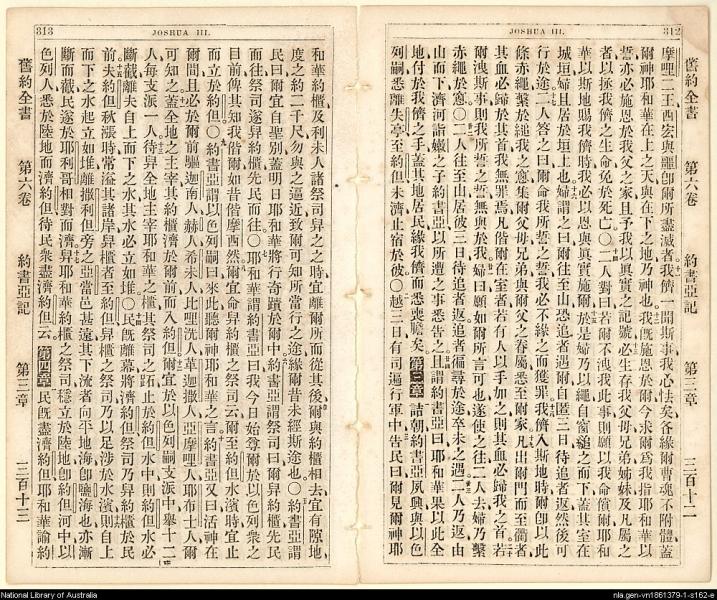 312
JOSHUA III.
舊約全書 第六卷 約書亞記 第三章 三百十二
摩哩二王西宏與噩卽爾所盡滅者我儕一聞斯事我必怯矣各緣爾曹魂不附體蓋
爾神耶和華在上之天與在下之地乃神也我旣施恩於爾今求爾爲我指耶和華以
誓亦必施恩於我父之家且予我以眞實之記號必生存我父母兄弟姊妹及凡屬之
者以拯我儕之生命免於死亡〇二人對曰若爾不洩我此事則願以我命償爾耶和
華以斯地賜我儕時我必以恩與眞實施爾於是婦乃以繩自窗縋之而下蓋其室在
城垣婦且居於垣上也婦謂之曰爾往至山恐追者遇爾自匿三日待追者返然後可
行於途二人答之曰爾命我所誓之誓我必不緣之而獲罪我儕入斯地時爾卽以此
條赤繩繫於縋我之窗集爾父母兄弟與爾父之眷屬悉至爾家凡出爾門而至衢者
其血必歸於其首我無罪焉凡偕爾在室者若有人以手加之則其血必歸我之首若
爾洩斯事則我所誓之誓無與於我婦曰願如爾所言可也遂使之往二人去婦乃繫
赤繩於窗〇二人往至山居彼三日待追者返追者徧尋於途卒未之遇二人乃返由
山而下濟河詣嫩之子約書亞以所遭之事悉告之且謂約書亞曰耶和華果以此全
地付於我儕之手蓋其地居民緣我儕而悉喪膽矣 第三章 詰朝約書亞夙興與以色
列嗣悉離失亭至約但未濟止宿於彼〇越三日有司遍行軍中告民曰爾見爾神耶
313
JOSHUA III.
和華約櫃及利未人諸祭司舁之之時宜離爾所而從其後爾與約櫃相去宜有隙地
度之約二千尺勿與之逼近致爾可知所當行之途緣爾昔未經斯途也〇約書亞謂
民曰爾宜自聖別蓋明日耶和華將行奇蹟於爾中約書亞謂祭司曰爾舁約櫃先民
而往祭司遂舁約櫃先民而往〇耶和華謂約書亞曰我今日始尊爾於以色列衆之
目前俾其知我偕爾如昔偕摩西然爾宜命舁約櫃之祭司云爾至約但水濱時宜止
而立於約但〇約書亞謂以色列嗣曰來此聽爾神耶和華之言約書亞又曰活神在
爾間且必於爾前驅迦南人赫人希未人比哩洗人革迦撒人亞摩哩人耶布士人爾
可知之蓋全地之主宰其約櫃濟於爾前而入約但爾宜於以色列嗣支派中舉十二
人每支派一人待舁全地主宰耶和華之櫃其祭司之跖止於約但水中則約但水必
斷截離夫自上而下之水其水必立如堆〇民旣離幕將濟約但祭司乃舁約櫃於民
前夫約但秋漲時常溢其諸岸舁櫃者至約但舁櫃之祭司乃以足涉於水濱則自上
而下之水起立如堆離撒利但旁之亞當邑甚遠其下流者向平地海卽鹽海也亦漸
斷而截民遂於耶利哥相對而濟舁耶和華約櫃之祭司穩立於陸地卽約但河中以
色列人悉於陸地而濟約但待民衆盡濟約但云 第四章 民旣盡濟約但耶和華諭約
舊約全書 第六卷 約書亞記 第三章 三百十三
National Library of Australia
nla.gen-vn1861379-1-s162-e